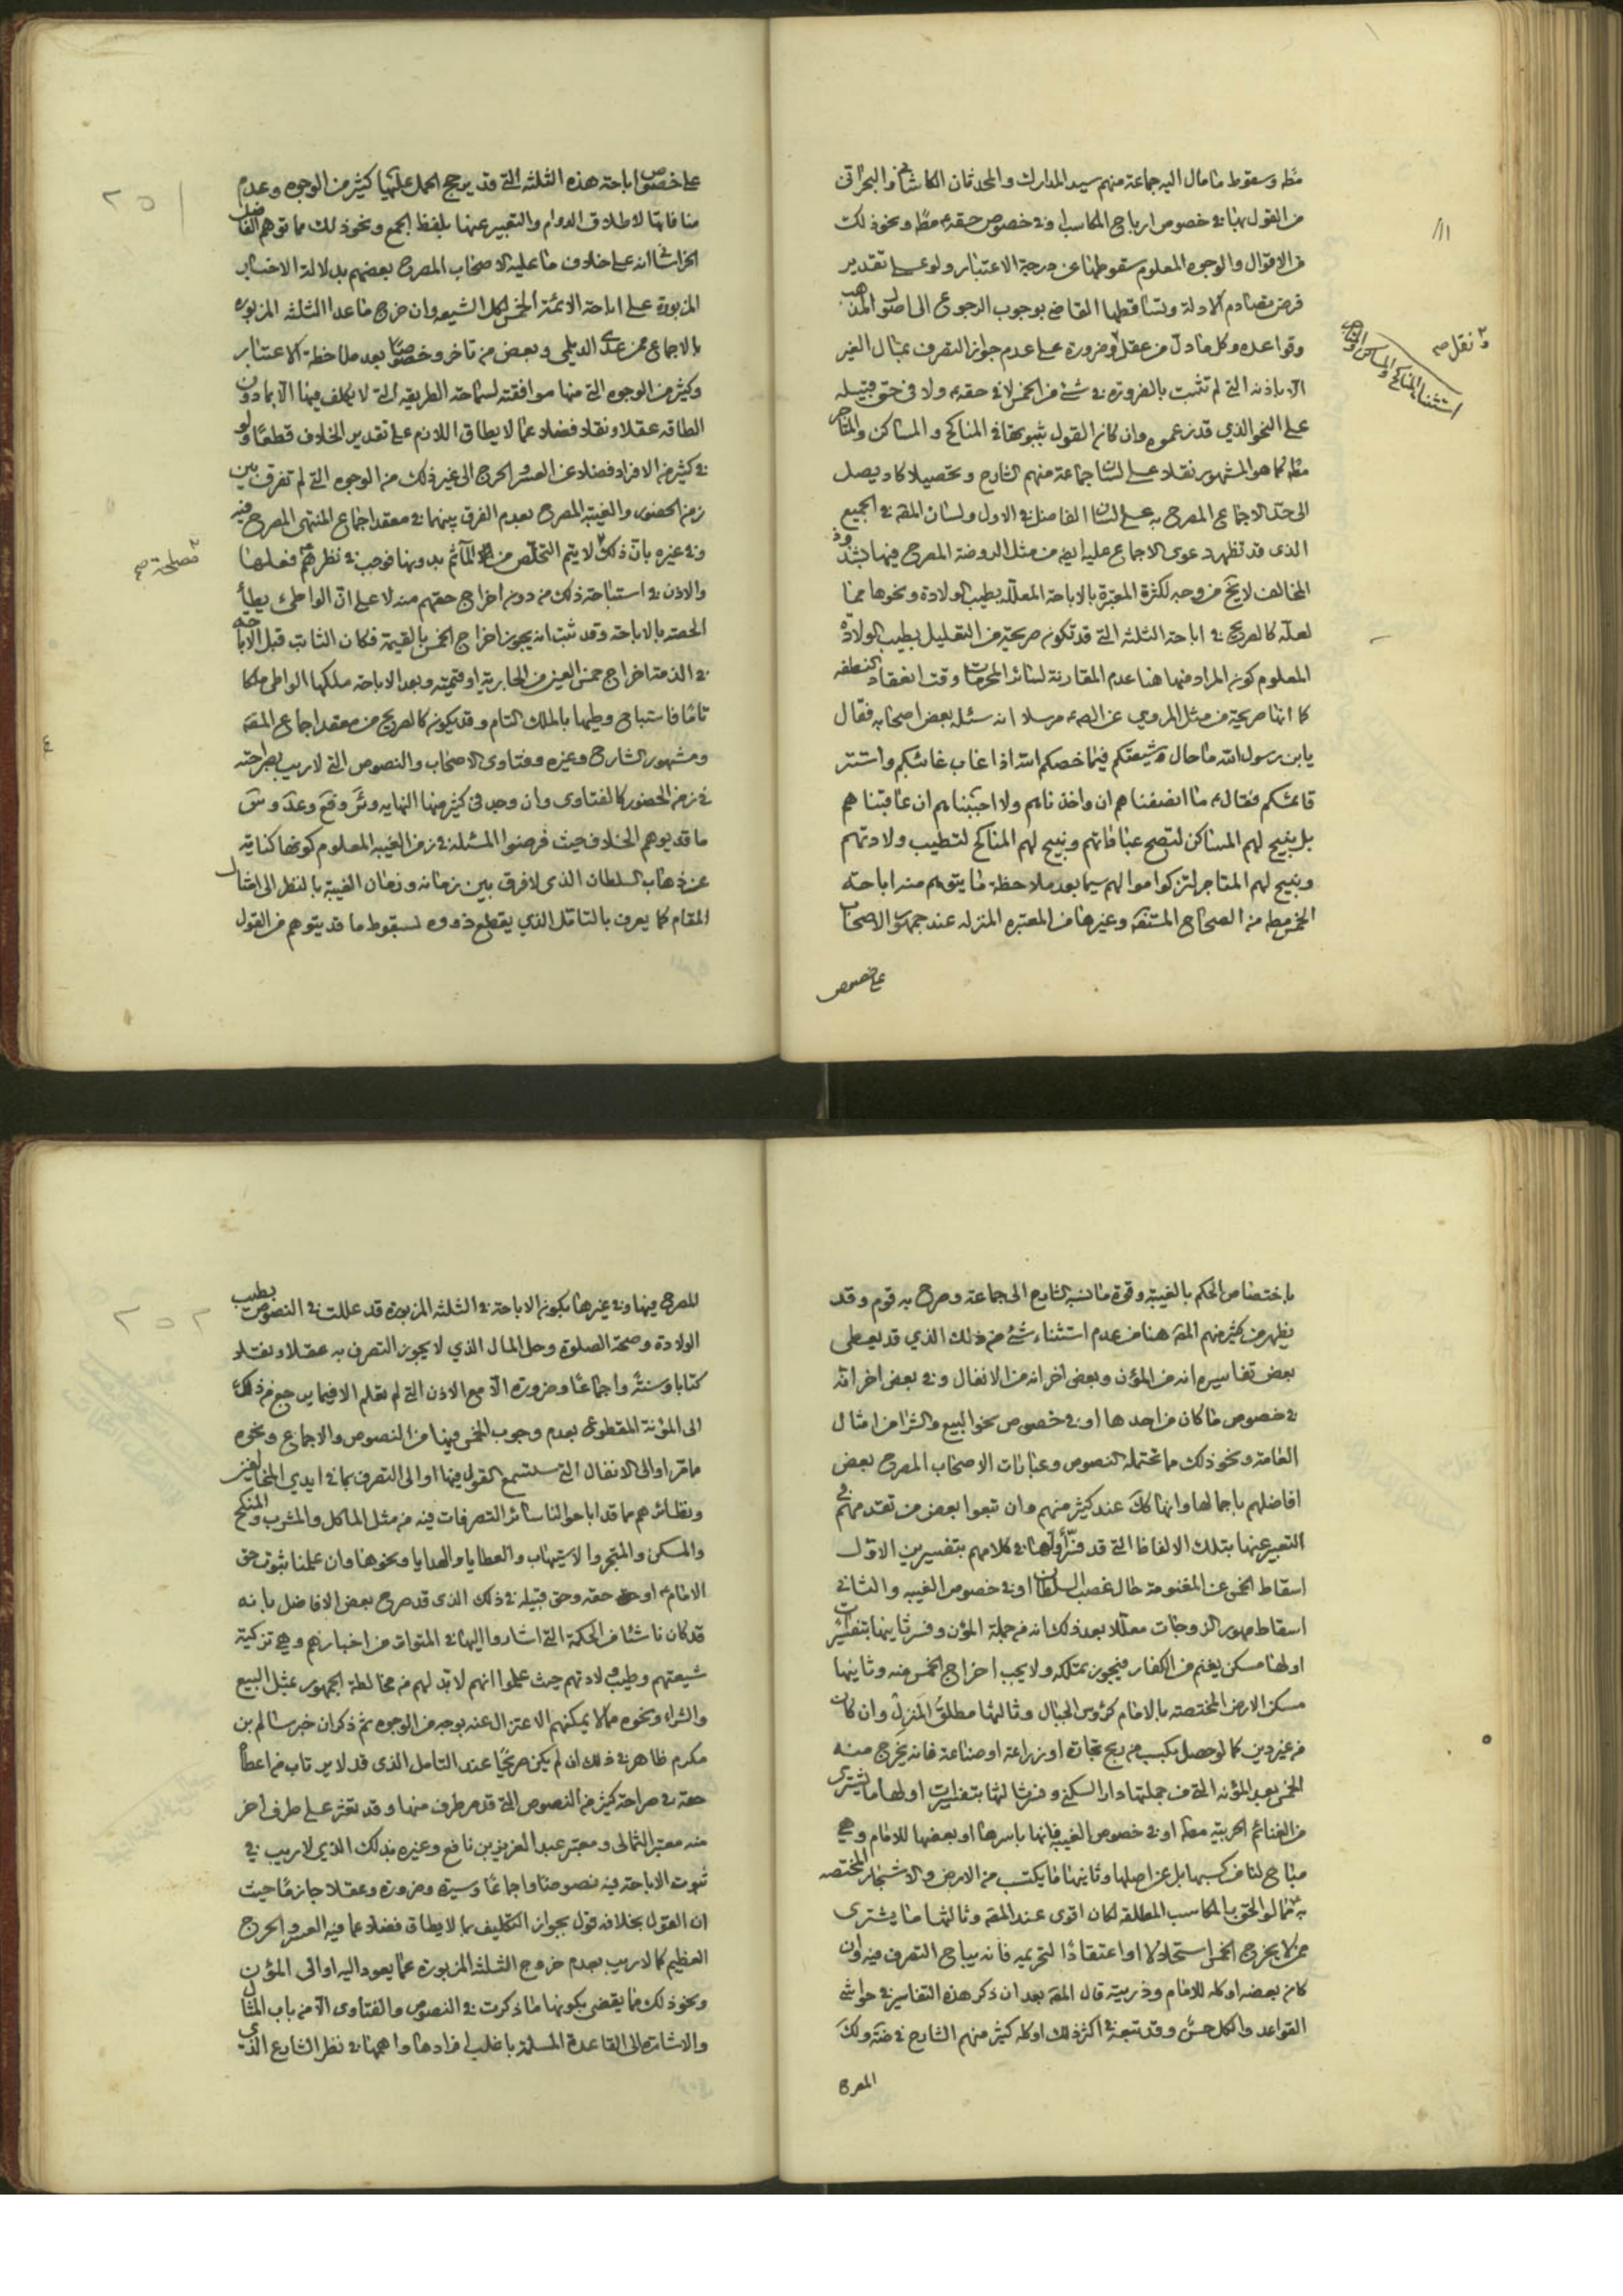 مطه وسقوط ما مال اليه جماعة منهم سيد المدارك والمحدثان الكاشاني والبحراني
من القول بها في خصوص ارباح المكاسب او في خصوص حقه ع مطه ونحو ذلك
من الاقوال والوجوه المعلوم سقوطها عن درجة الاعتبار ولو على تقدير
فرض تصادم الادلة وتساقطها القاضي بوجوب الرجوع الى اصول المذهب
وقواعده وكل ما دل من عقل او ضرورة على عدم جواز التصرف بمال الغير
الا باذنه التي لم تثبت بالضرورة في شئ من الخمس لا في حقه ع ولا في حق قبيله
على النحو الذي قد زعموه وان كان القول بثبوتها في المناكح والمساكن والمتاجر
مطه كما هو المشهور نقلا على لسان جماعة منهم الشارح وتحصيلا كاد يصل
الى حد الاجماع المصرح به على لسان الفاضل في الاول ولسان المقه في الجميع
الذي قد تظهر دعوى الاجماع عليه ايضه من مثل الروضة المصرح فيها بشذوذ
المخالف لا يخ من وجه لكثرة المعتبرة بالاباحة المعللة بطيب الولادة ونحوها مما
لعله كالصريح في اباحة الثلثة التي قد تكون صريحة من التعليل بطيب الولادة
المعلوم كون المراد منها هنا عدم المقارنة لسائر المحرمات وقت انعقاد النطفة
كما انها صريحة من مثل المروي عن الصه ع مرسلا انه سئله بعض اصحابه فقال
يابن رسول الله ما حال شيعتكم فيما خصكم الله اذا غاب غائبكم واستتر
قائمكم فقال ع ما انصفناهم ان واخذناهم ولا احببناهم ان عاقبناهم
بل نبيح لهم المساكن لتصح عباداتهم ونبيح لهم المناكح لتطيب ولادتهم
ونبيح لهم المتاجر لتزكوا اموالهم سيما بعد ملاحظة ما يتوهم منه اباحة
الخمس مطه من الصحاح المستفه وغيرها من المعتبره المنزله عند جمهور الاصحاب
على خصوص
نقل صه
استثناء المناكح والمساكن والمتاجر
على خصوص اباحة هذه الثلثه التي قد يرجح الحمل عليها كثير من الوجوه وعدم
منافاتها لاطلاق الدوام والتعبير عنها بلفظ الجمع ونحو ذلك مما توهم الفاضل
الخراساني انه على خلاف ما عليه الاصحاب المصرح بعضهم بدلالة الاخبار
المزبورة على اباحة الائمة الخمس لكل الشيعه وان خرج ما عدا الثلثه المزبوره
بالاجماع ممن عدى الديلمي وبعض من تاخر وخصوصا بعد ملاحظة الاعتبار
وكثير من الوجوه التي منها موافقته لسماحة الطريقه التي لا يكلف فيها الا بما دون
الطاقه عقلا ونقلا فضلا عما لا يطاق اللازم على تقدير الخلاف قطعا ولو
في كثير من الافراد فضلا عن العسر والحرج الى غير ذلك من الوجوه التي لم تفرق بين
زمن الحضور والغيبه المصرح بعدم الفرق بينهما في معقد اجماع المنتهى المصرح فيه
وفي غيره بان ذلك لا يتم التخلص من المآثم بدونها فوجب في نظرهم ع فعلها
والاذن في استباحة ذلك من دون اخراج حقهم منه لا على ان الواطئ يطأ
الحصه بالاباحة وقد ثبت انه يجوز اخراج الخمس بالقيمة فكان الثابت قبل الاباحه
في الذمة اخراج خمس العين من الجارية او قيمته وبعد الاباحه ملكها الواطي ملكا
تاما فاستباح وطيها بالملك التام وقد يكون كالصريح من معقد اجماع المقه
ومشهور الشارح وغيره وفتاوى الاصحاب والنصوص التي لا ريب بصراحته
في زمن الحضور كالفتاوى وان وجد في كثير منها
ما قد يوهم الخلاف حيث فرضوا المسئلة في زمن الغيبه المعلوم كونها كناية
عن ذهاب السلطان الذي لا فرق بين زمانه وزمان الغيبة بالنظر الى امثال
المقام كما يعرف بالتامل الذي يقطع ذووه لسقوط ما قد يتوهم من القول
مصلحة صح
٢٥١
باختصاص الحكم بالغيبة وقوة ما نسبه الشارح الى جماعة وصرح به قوم وقد
يظهر من كثير منهم المقه هنا من عدم استثناء شئ من ذلك الذي قد يعطي
بعض تفاسيره انه من المؤن وبعض اخر انه من الانفال وفي بعض اخر انه
في خصوص ما كان من احدها او في خصوص نحو البيع والشرا من امثال
العامة ونحو ذلك مما تحتمله النصوص وعبارات الاصحاب المصرح بعض
افاضلهم باجمالها وانها كك عند كثير منهم وان تبعوا بعض من تقدمهم في
التعبير عنها بتلك الالفاظ التي قد فسر اولها في كلامهم بتفسيرين الاول
اسقاط الخمس عن المغنومة حال غصب السلطان او في خصوص الغيبه والثاني
اسقاط مهور الزوجات معللا بعد ذلك انه من جملة المؤن وفسر ثانيها بتفسيرات
اولها مسكن يغنم من الكفار فيجوز تملكه ولا يجب اخراج الخمس منه وثانيها
مسكن الارض المختصة بالامام كرؤس الجبال وثالثها مطلق المنزل وان كان
من غير دين كما لو حصل بكسب من ربح تجاره او زراعة او صناعة فانه يخرج منه
الخمس بعد المؤنه التي من جملتها دار السكنى وفسر ثالثها بتفسيرات اولها ما يشترى
من الغنائم الحربية مطه او في خصوص الغيبه فانها باسرها او بعضها للامام وهي
مباح لنا من كسبها بل عن اصلها وثانيها ما يكتسب من الارض والاشجار المختصه
به ع مما لو الحق بالمكاسب المطلقه لكان اقوى عند المقه وثالثها ما يشترى
ممن لا يخرج الخمس استحلالا او اعتقادا لتحريمه فانه يباح التصرف فيه وان
كان بعضه او كله للامام وذريته قال المقه بعد ان ذكر هذه التفاسير في حواشي
القواعد والكل حسن وقد تبعه في اكثر ذلك او كله كثير منهم الشارح في ضه ولك
المصرح
للمصرح فيها وفي غيرها بكون الاباحة في الثلثه المزبوره قد عللت في النصوص بطيب
الولادة وصحة الصلوة وحل المال الذي لا يجوز التصرف به عقلا ونقلا
كتابا وسنة واجماعا وضرورة الا مع الاذن التي لم تعلم الا فيما يرجع من ذلك
الى المؤنة المقطوع بعدم وجوب الخمس فيها من النصوص والاجماع ونحوه
مما مر او الى الانفال التي ستسمع القول فيها او الى التصرف بما في ايدي المخالفين
ونظائرهم مما قد اباحوا لنا سائر التصرفات فيه من مثل الماكل والمشرب والمنكح
والمسكن والمتجر والاستيهاب والعطايا والهدايا ونحوها وان علمنا ثبوت حق
الامام ع او حقه وحق قبيله في ذلك الذي قد صرح بعض الافاضل بانه
قد كان ناشئا من الحكمة التي اشاروا اليها في المتواتر من اخبارهم وهي تزكية
شيعتهم وطيب ولادتهم حيث علموا انهم لا بد لهم من مخالطة الجمهور بمثل البيع
والشراء ونحوه مما لا يمكنهم الاعتزال عنه بوجه من الوجوه ثم ذكر ان خبر سالم بن
مكرم ظاهر في ذلك ان لم يكن صريحا عند التامل الذي قد لا يرتاب من اعطا
حقه في صراحة كثير من النصوص التي قد مر طرف منها وقد تعثر على طرف اخر
منه معتبر الثمالى ومعتبر عبد العزيز بن نافع وغيره بذلك الذي لا ريب في
ثبوت الاباحة فيه نصوصا واجماعا وسيرة وضرورة وعقلا جازما حيث
ان القول بخلافه قول بجواز التكليف بما لا يطاق فضلا عما فيه العسر والحرج
العظيم كما لا ريب بعدم خروج الثلثه المزبورة عما يعود اليه او الى المؤن
ونحو ذلك مما يقضي بكونها ما ذكرت في النصوص والفتاوى الا من باب المثال
والاشارة الى القاعدة المسلمة باغلب افرادها واهمها في نظر الشارع الذي
٢٥٢